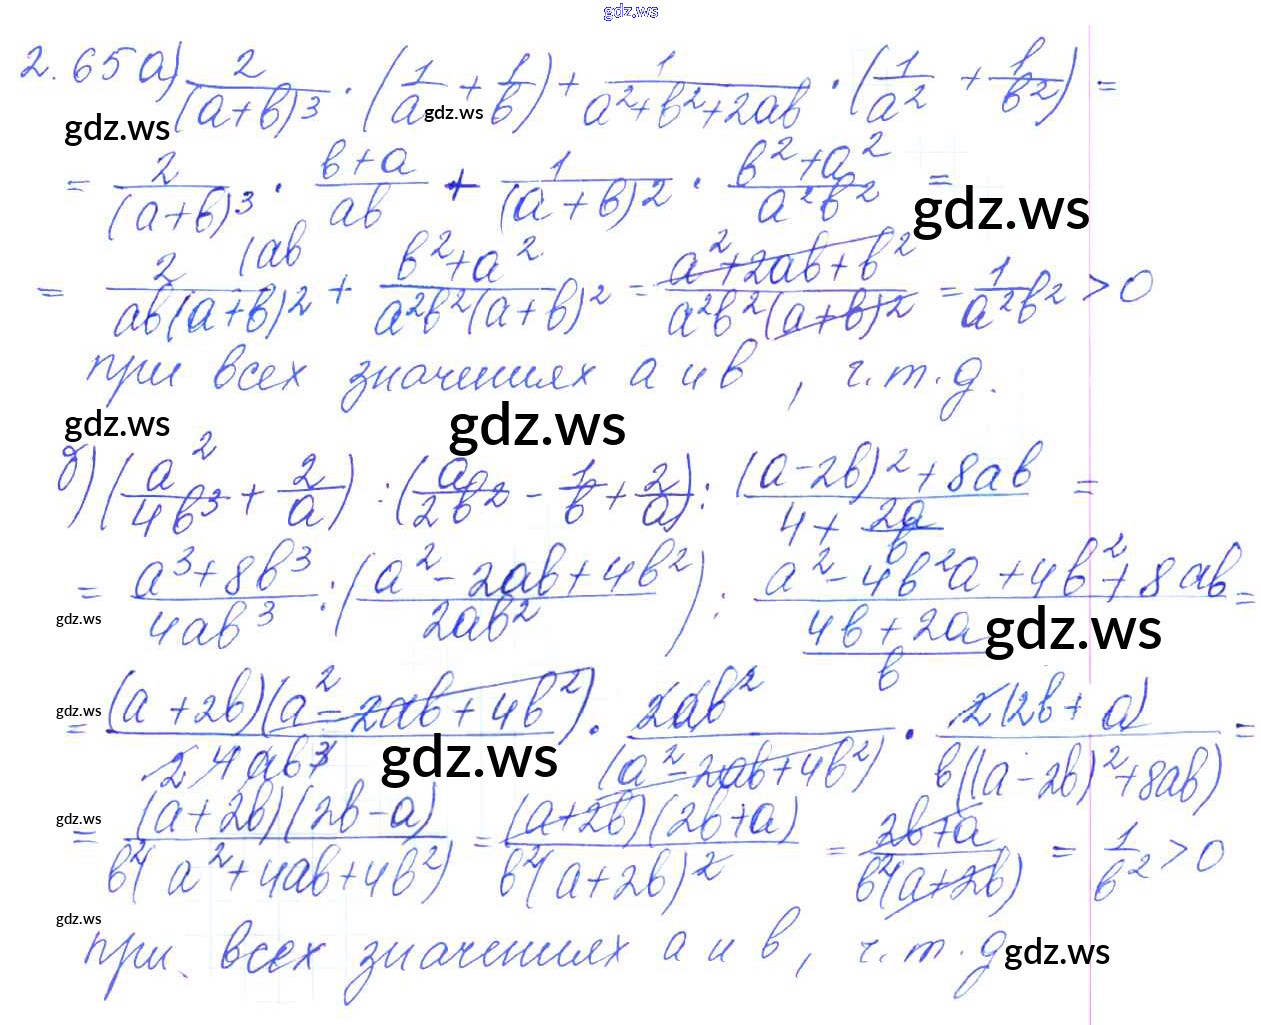 gdz.ws
2.65 а) 2/(a+b)^3 · (1/a + 1/b) + 1/(a^2+b^2+2ab) · (1/a^2 + 1/b^2) =
gdz.ws gdz.ws
= 2/(a+b)^3 · (b+a)/(ab) + 1/(a+b)^2 · (b^2+a^2)/(a^2b^2) =
gdz.ws
= 2 (ab/(ab(a+b)^2) + (b^2+a^2)/(a^2b^2(a+b)^2) = (a^2+2ab+b^2)/(a^2b^2(a+b)^2) = 1/(a^2b^2) > 0
при всех значениях a и b, ч.т.д.
gdz.ws gdz.ws
б) (a^2/(4b^3) + 2/a) : (a/(2b^2) - 1/b + 2/a) : ((a-2b)^2+8ab)/(4 + 2a/b) =
= (a^3+8b^3)/(4ab^3) : ((a^2-2ab+4b^2)/(2ab^2)) : (a^2-4b^2a+4b^2+8ab)/((4b+2a)/b) =
gdz.ws gdz.ws
= (a+2b)(a^2-2ab+4b^2)/(2 4ab^3) · 2ab^2/(a^2-2ab+4b^2) · 2(2b+a)/(b((a-2b)^2+8ab)) =
gdz.ws gdz.ws
= (a+2b)(2b-a)/(b^2(a^2+4ab+4b^2)) = (a+2b)(2b+a)/(b^2(a+2b)^2) = (2b+a)/(b^2(a+2b)) = 1/b^2 > 0
gdz.ws
gdz.ws
при всех значениях a и b, ч.т.д.
gdz.ws